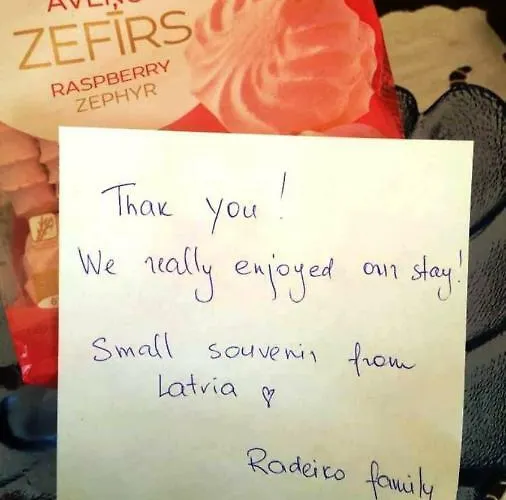 AVEŅU
ZEFĪRS
RASPBERRY
ZEPHYR
Thak you!
We really enjoyed our stay!
Small souvenir from
Latvia
Radeiko family